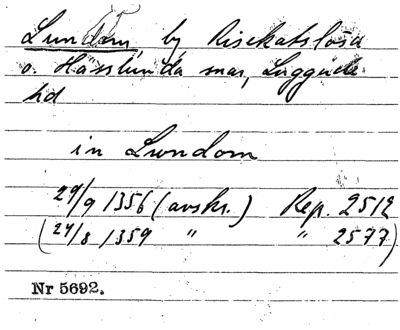 Lundom, by Risekatslösa
o. Hässlunda snar, Luggude
hd
in Lundom
29/9 1356 (avskr.) Rep. 2512
(24/8 1359 " " 2577)
Nr 5692.